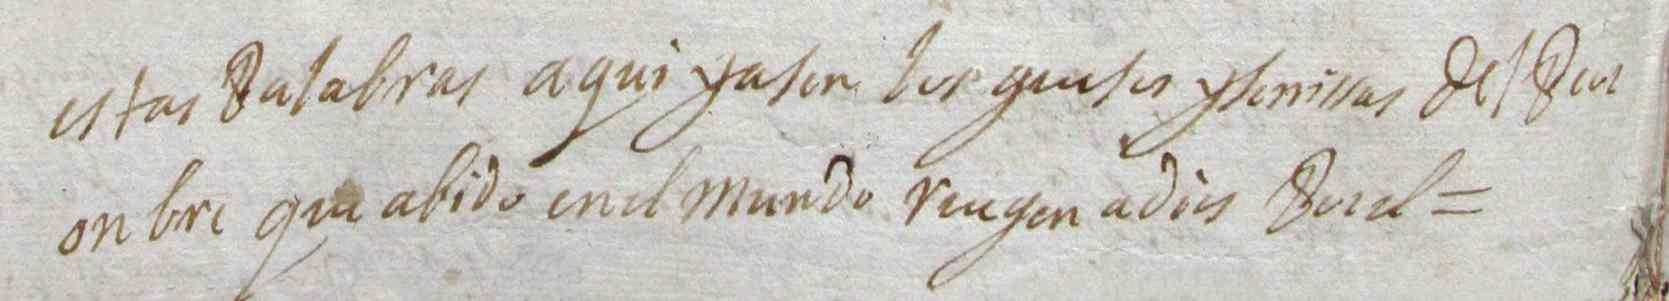 estas Palabras aqui yasen los guesos ysenissas del Peor
onbre que abido en el mundo rueguen adios Por el =